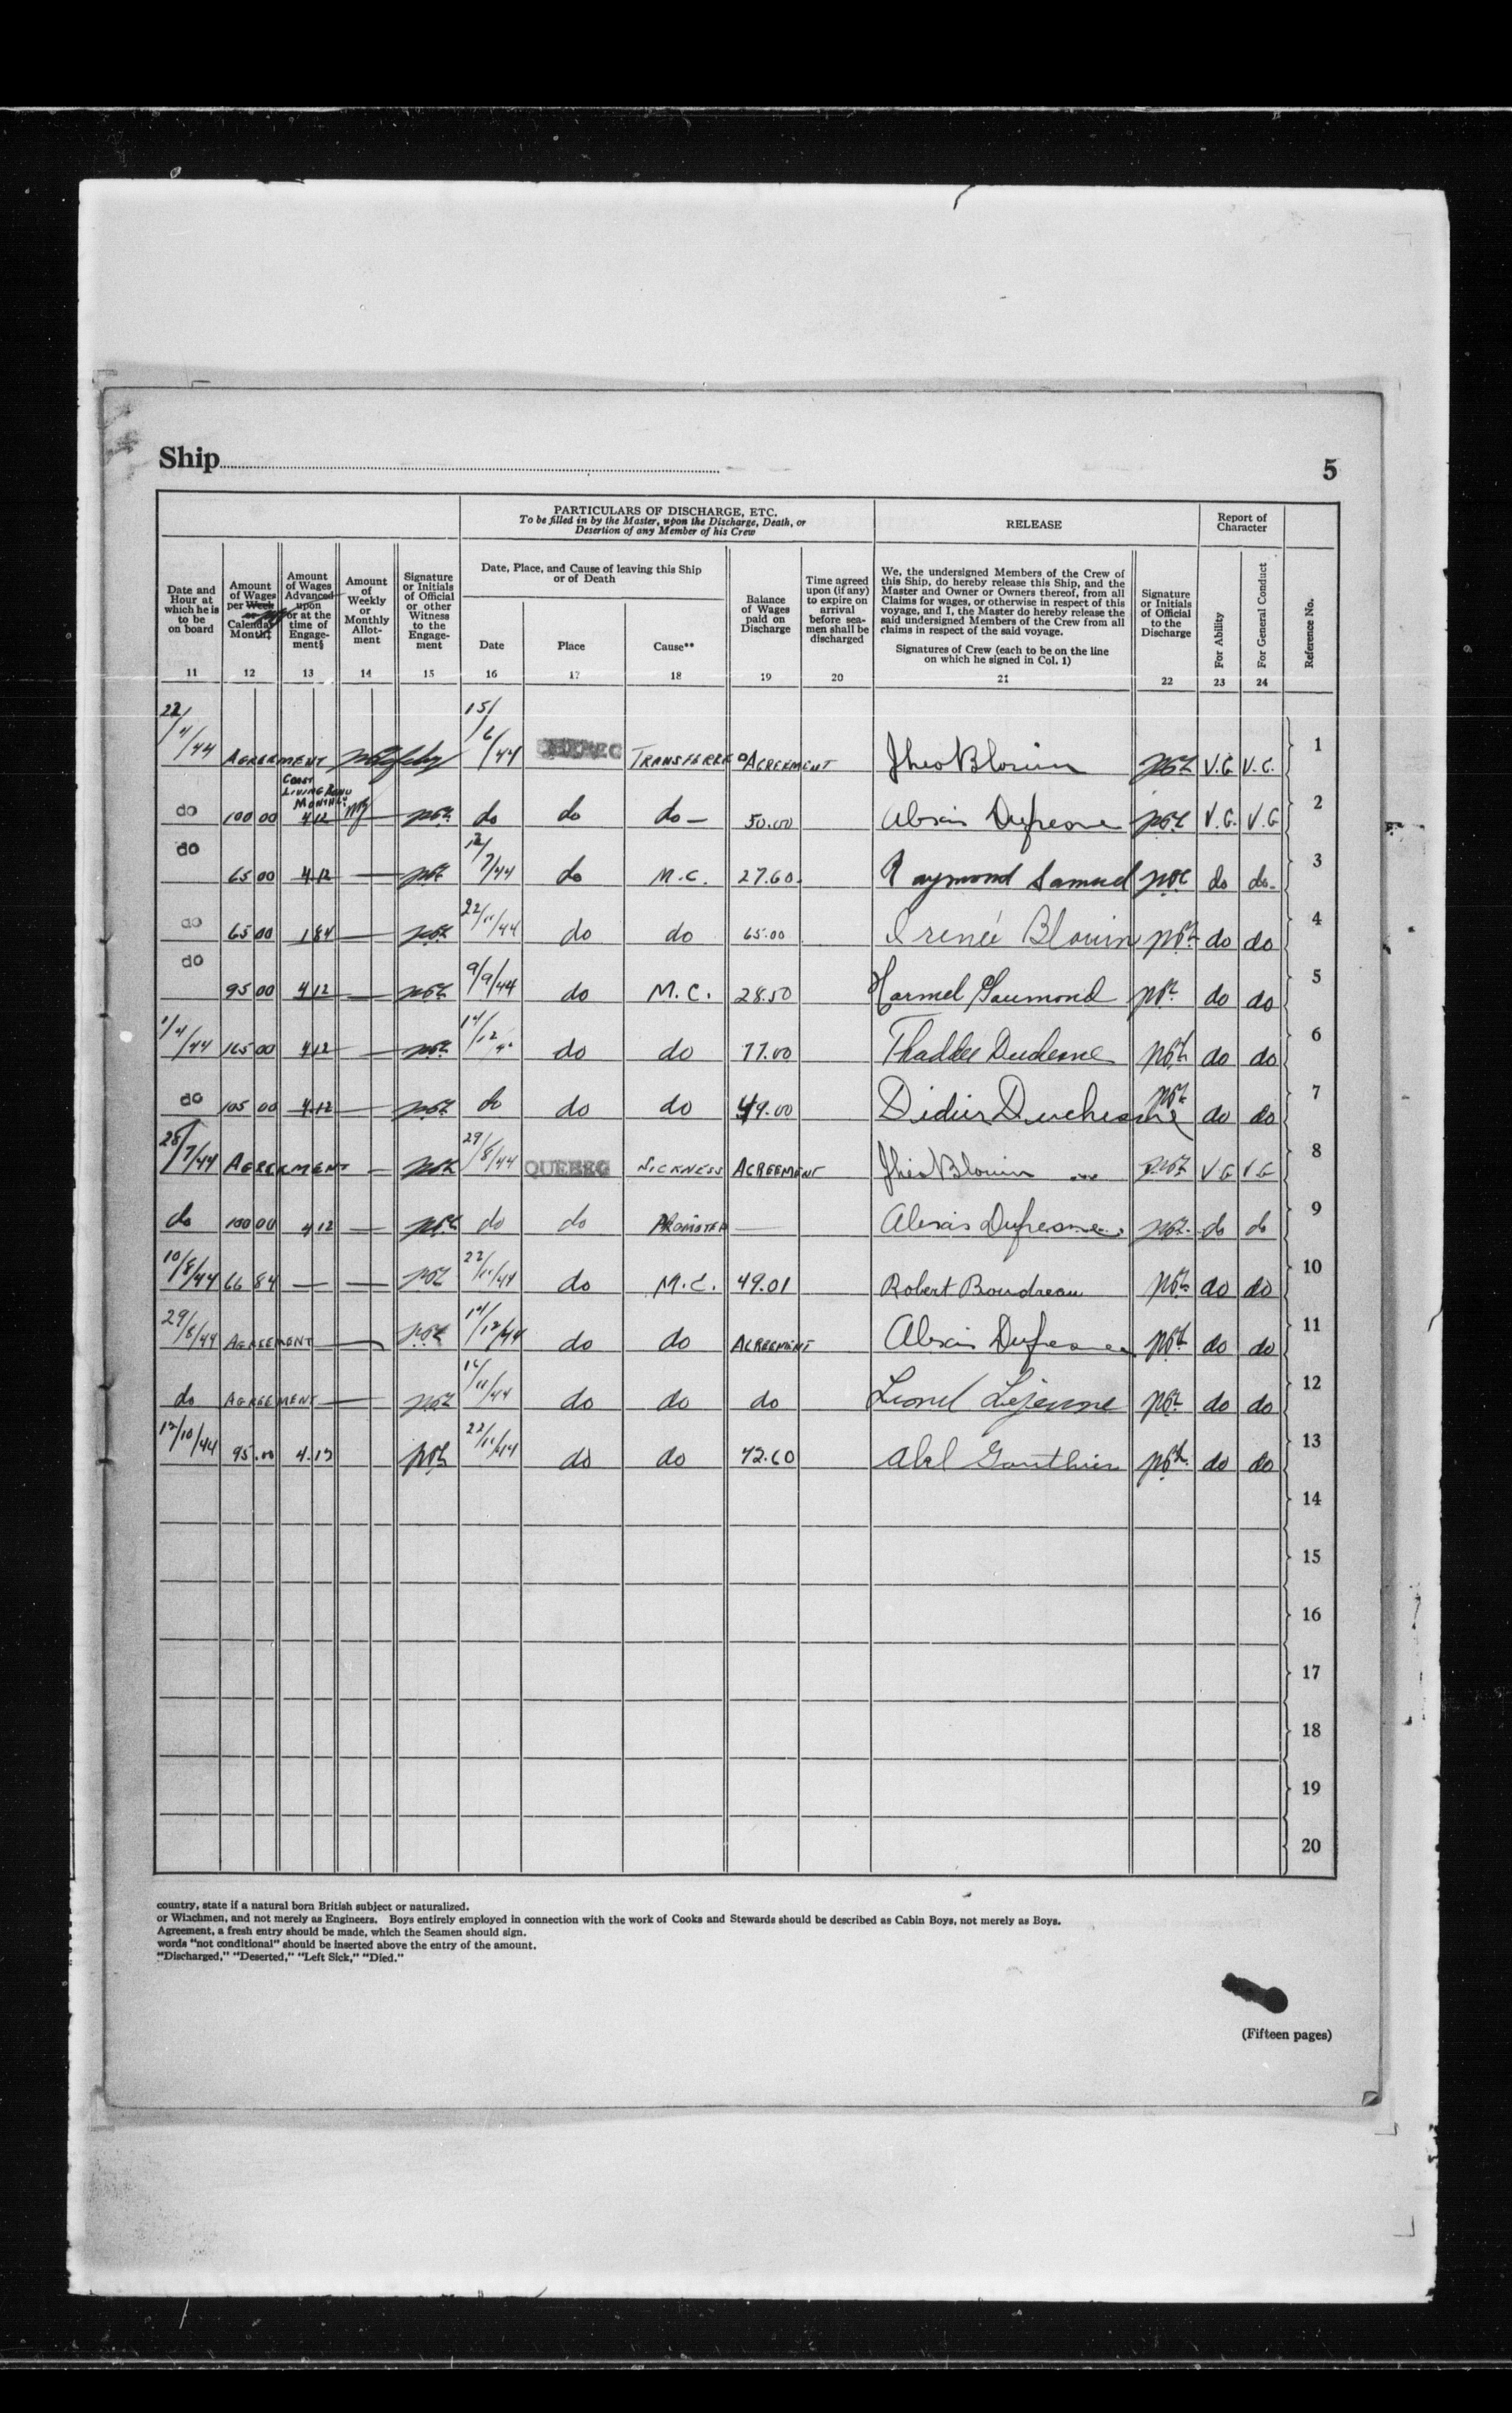 Ship
5
PARTICULARS OF DISCHARGE, ETC.
To be filled in by the Master, upon the Discharge, Death, or
Desertion of any Member of his Crew
RELEASE
Report of
Character
Date and
Hour at
which he is
to be
on board
11
Amount
of Wages
per Week
Calendar
Month‡
12
Amount
of Wages
Advanced
upon
or at the
time of
Engage-
ment§
13
Amount
of
Weekly
or
Monthly
Allot-
ment
14
Signature
or Initials
of Official
or other
Witness
to the
Engage-
ment
15
Date, Place, and Cause of leaving this Ship
or of Death
Date
16
Place
17
Cause**
18
Balance
of Wages
paid on
Discharge
19
Time agreed
upon (if any)
to expire on
arrival
before sea-
men shall be
discharged
20
We, the undersigned Members of the Crew of
this Ship, do hereby release this Ship, and the
Master and Owner or Owners thereof, from all
Claims for wages, or otherwise in respect of this
voyage, and I, the Master do hereby release the
said undersigned Members of the Crew from all
claims in respect of the said voyage.
Signatures of Crew (each to be on the line
on which he signed in Col. 1)
21
Signature
or Initials
of Official
to the
Discharge
22
For Ability
23
For General Conduct
24
Reference No.
22/4/44 AGREEMENT 15/6/44 QUEBEC TRANSFERRED AGREEMENT Theo Blouin V.G. V.G. 1
LIVING
do 100 00 4 12 do do do — 50.00 Alexis Dufresne V.G. V.G 2
do 65 00 4 12 — 12/7/44 do M.C. 27.60 Raymond Samuel do do 3
do 65 00 1 84 — 22/11/44 do do 65.00 Irenée Blouin do do 4
do 95 00 4 12 — 9/9/44 do M.C. 28.50 Harmel Gaumond do do 5
1/4/44 165 00 4 12 — 14/12/44 do do 77.00 Thaddée Duchesne do do 6
do 105 00 4 12 — do do do 49.00 Didier Duchesne do do 7
28/7/44 AGREEMENT — 29/8/44 QUEBEC SICKNESS AGREEMENT Theo Blouin V.G V.G 8
do 100 00 4 12 — do do PROMOTED — Alexis Dufresne do do 9
10/8/44 66 84 — — 22/11/44 do M.C. 49.01 Robert Boudreau do do 10
29/8/44 AGREEMENT — 14/12/44 do do AGREEMENT Alexis Dufresne do do 11
do AGREEMENT — 16/11/44 do do do Lionel Lejeune do do 12
12/10/44 95.00 4.12 22/11/44 do do 72.60 Abel Gauthier do do 13
14
15
16
17
18
19
20
country, state if a natural born British subject or naturalized.
or Winchmen, and not merely as Engineers. Boys entirely employed in connection with the work of Cooks and Stewards should be described as Cabin Boys, not merely as Boys.
Agreement, a fresh entry should be made, which the Seamen should sign.
words "not conditional" should be inserted above the entry of the amount.
"Discharged," "Deserted," "Left Sick," "Died."
(Fifteen pages)